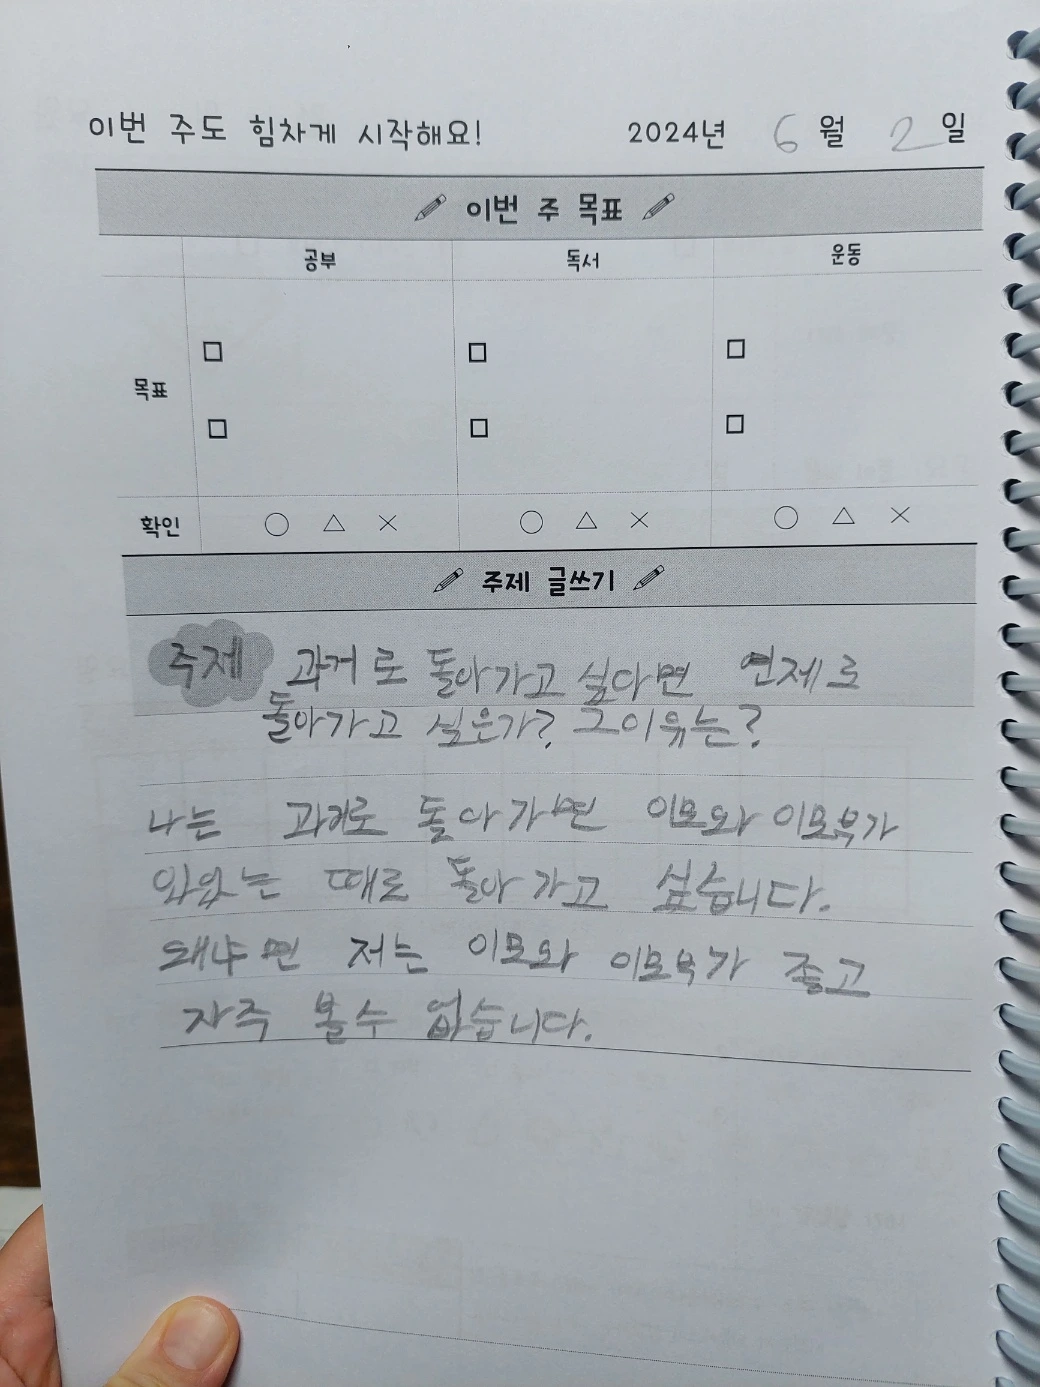 이번 주도 힘차게 시작해요! 2024년 6월 2일
이번 주 목표
공부 독서 운동
목표
확인 ○ △ × ○ △ × ○ △ ×
주제 글쓰기
주제 과거로 돌아가고 싶다면 언제로
돌아가고 싶은가? 그이유는?
나는 과거로 돌아가면 이모와 이모부가
와있는 때로 돌아가고 싶습니다.
왜냐면 저는 이모와 이모부가 좋고
자주 볼수 없습니다.